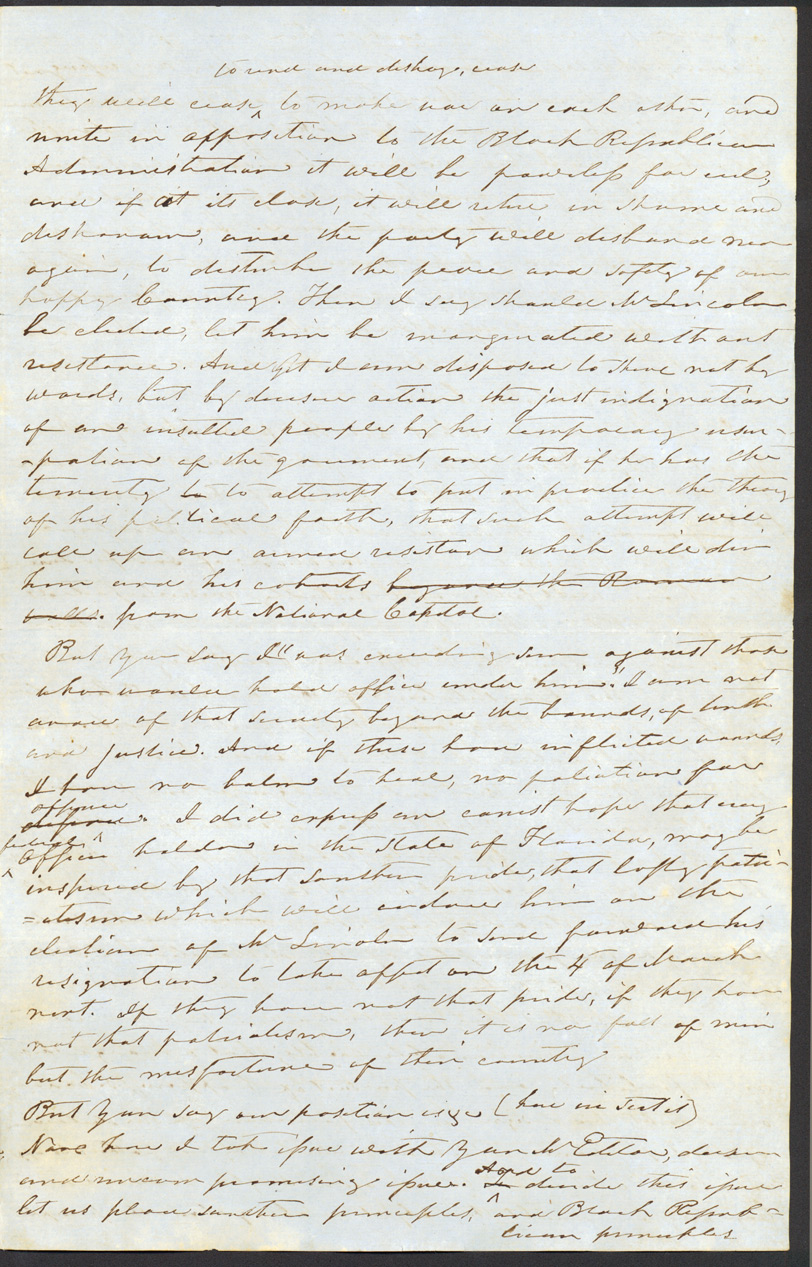 to end and
they will cease to make war on each other, and
unite in opposition to the Black Republican
Administration it will be powerless for evil,
and if at its close, it will retire in shame and
dishonour, and the party will disband never
again, to disturb the peace and safety of our
happy Country. Then I say should Mr Lincoln
be elected, let him be inaugurated without
resistance. And yet I am disposed to show not by
words, but by decisive action the just indignation
of an insulted people by his temporary usur-
-pation of the government, and that if he has the
temerity to to attempt to put in practice the theory
of his political faith, that such attempt will
call up an armed resistance which will drive
him and his cohorts beyond the Roman
walls. from the National Capitol.
But you say I "was exceeding severe against those
who would hold office under him". I am not
aware of that severity beyond the bounds, of truth
and justice. And if these have inflicted wounds,
I have no balm to heal, no paliation for
offence
I did express an earnist hope that every
federal
office holder in the State of Florida, may be
inspired by that southern pride, that lofty patri-
=otism which will induce him on the
election of Mr Lincoln to send forward his
resignation to take effect on the 4 of March
next. If they have not that pride, if they have
not that patriotism, then it is no falt of mine
but the misfortune of their country
But you say our position is &c (here insert it)
Now here I take issue with you Mr Editor,
and uncompromising issue. And to decide this issue
let us place southern principles, and Black Repub-
lican principles